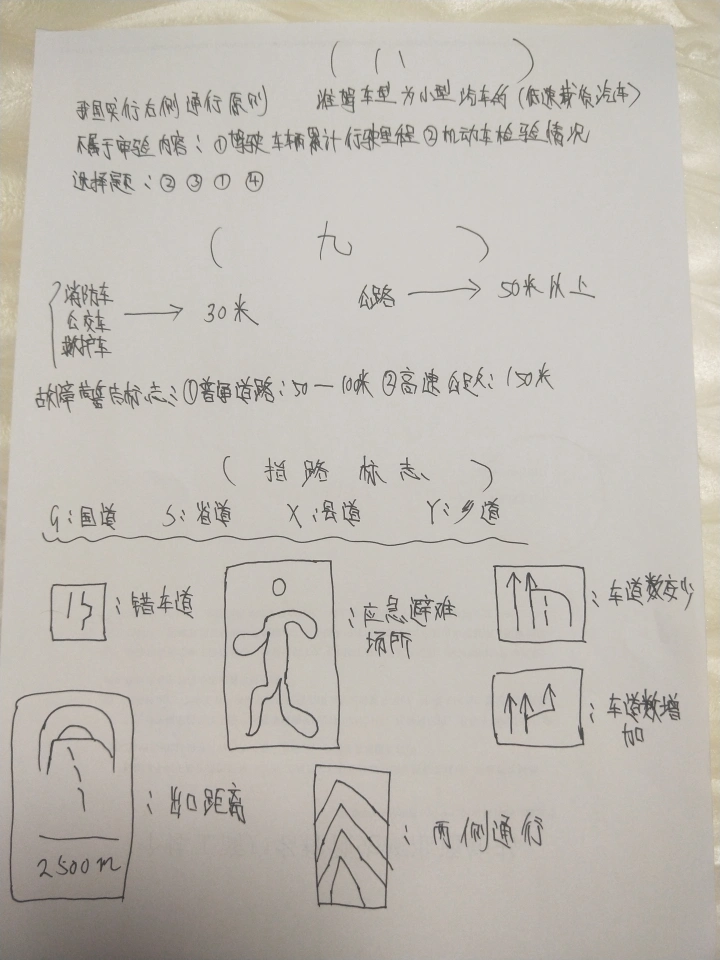 (八)
我国实行右侧通行原则 准驾车型为小型汽车的(低速载货汽车)
不属于审验内容:①驾驶车辆累计行驶里程②机动车检验情况
选择题:②③①④
(九)
消防车
公交车
救护车
→ 30米
公路 → 50米以上
故障警告标志:①普通道路:50—100米②高速公路:150米
(指路标志)
G:国道 S:省道 X:县道 Y:乡道
:错车道
:应急避难
场所
:车道数变少
:车道数增
加
:出口距离
2500m
:两侧通行